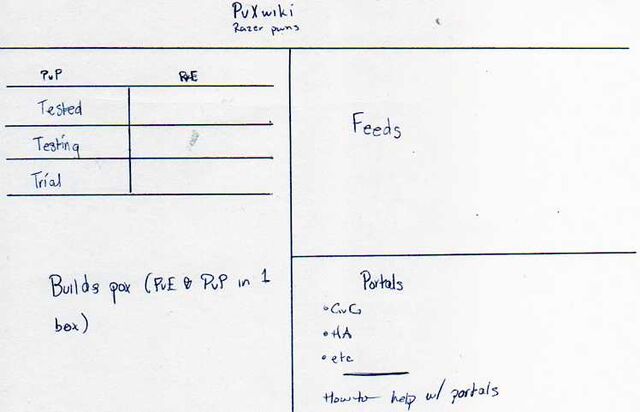 PvXwiki
Razer pwns
PvP PvE
Tested
Testing
Trial
Builds pox (PvE & PvP in 1
box)
Feeds
Portals
• GvG
• HA
• etc
How to help w/ portals